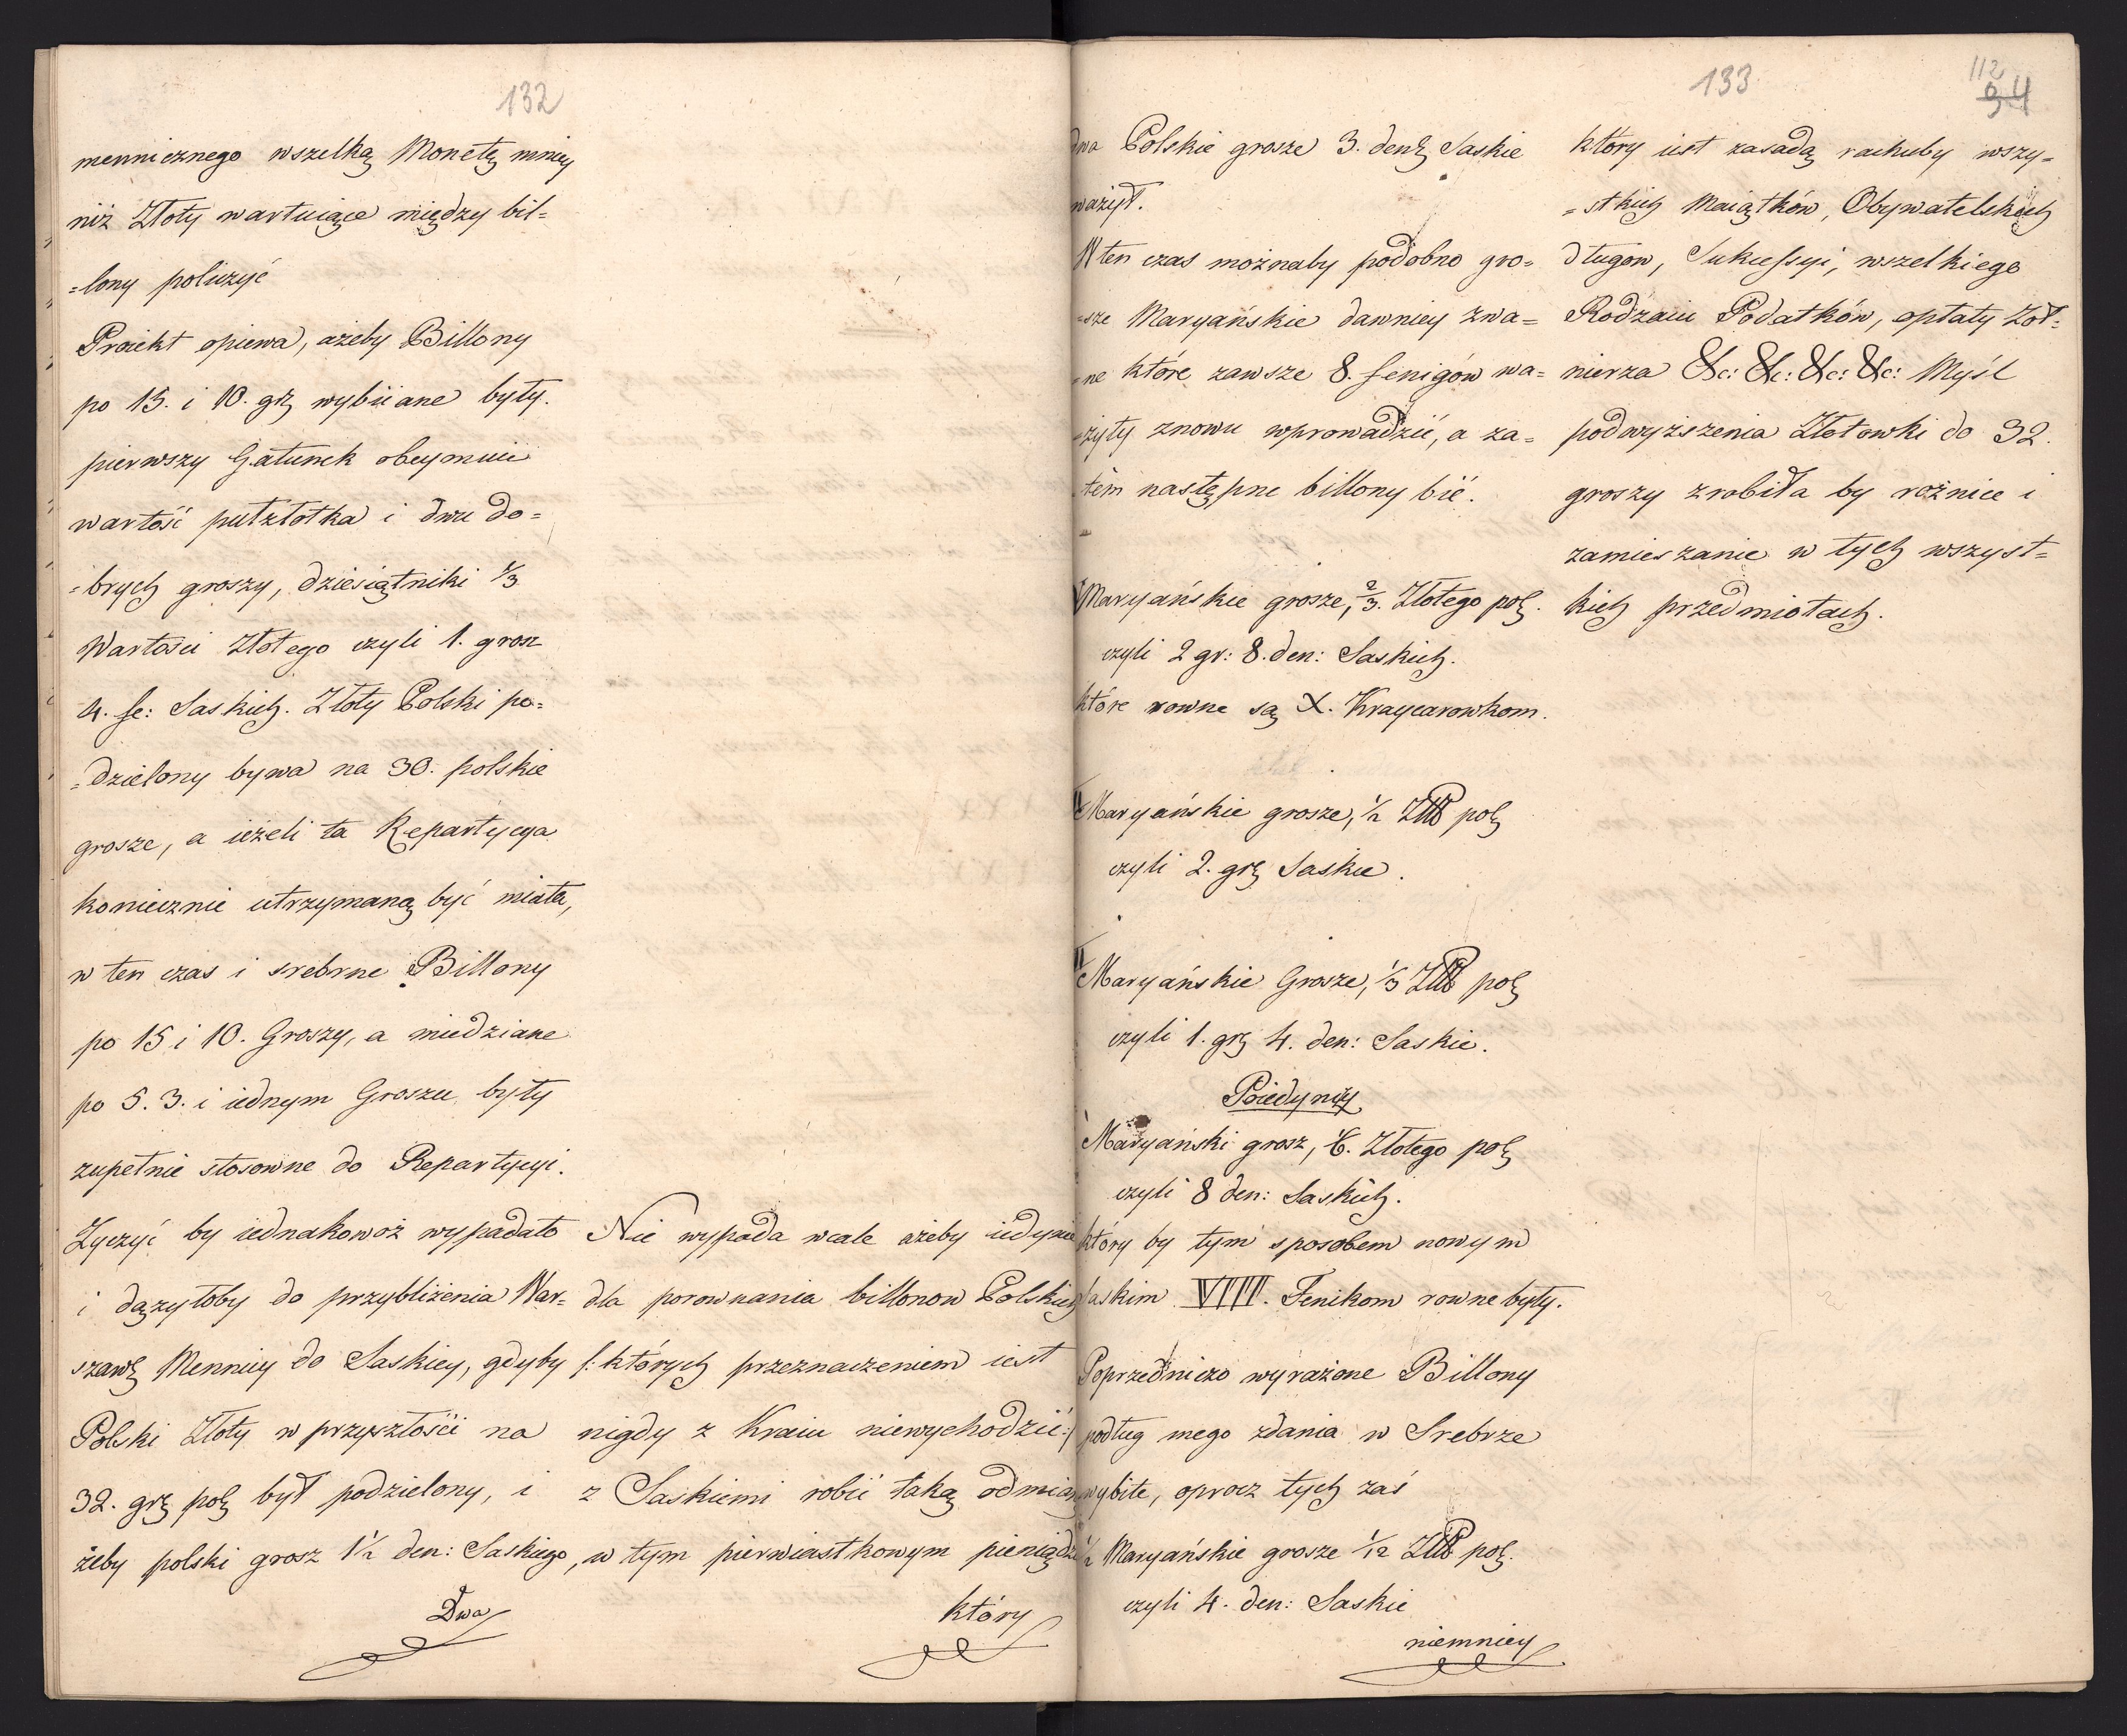 132
mennicznego wszelką Monetę mniey
niż Złoty wartuiące między bil=
=lony policzyć
Proiekt opiewa, ażeby Billony
po 15. i 10. grz wybiiane były.
pierwszy Gatunek obeymuie
wartość pułzłotka i dwu do=
=brych groszy, dziesiątniki 1/3
Wartości Złotego czyli 1. grosz
4. fe: Saskich. Złoty Polski po=
=dzielony bywa na 30. polskie
grosze, a ieżeli ta Repartycya
koniecznie utrzymaną być miała,
w ten czas i srebrne Billony
po 15 i 10. Groszy, a miedziane
po 5. 3. i iednym Groszu były
zupełnie stosowne do Repartycyi.
Zyczyć by iednakowoż wypadało
i dązyłoby do przybliżenia War=
szaws Mennicy do Saskiey, gdyby
Polski Złoty w przyszłości na
32. grz pols był podzielony, i
żeby polski grosz 1½ den: Saskiego,
Dwa
Nie wypada wcale ażeby iedynie
dla porownania billonow Polskich
/: których przeznaczeniem iest
nigdy z Kraiu niewychodzić :/
z Saskiemi robić taką odmianę
w tym pierwiastkowym pieniądzu
który
133
112
34
dwa Polskie grosze 3. den Saskie
ważył.
W ten czas możnaby podobno gro=
=sze Maryańskie dawniey zwa=
=ne które zawsze 8. fenigów wa=
=żyły znowu wprowadzić, a za=
tém następne billony bić.
Maryańskie grosze, 2/3. Złotego pol.
czyli 2 gr: 8. den: Saskich.
które rowne są X. Kraycarowkom.
Maryańskie grosze, ½ Złło pol
czyli 2. grz Saskie.
II Maryańskie Grosze, 1/3 Złło pol
czyli 1. grz 4. den: Saskie.
Poiedynczy
Maryański grosz, 1/6. Złotego pol
czyli 8 den: Saskich.
który by tym sposobem nowym
Saskim VIII. Fenikom rowne były.
Poprzedniczo wyrażone Billony
podług mego zdania w Srebrze
wybite, oprocz tych zaś
½ Maryańskie grosze 1/12 Złło pol.
czyli 4. den: Saskie
niemniey
który iest zasadą rachuby wszy=
=stkich Maiątków, Obywatelskich
długow, Sukcessyi, wszelkiego
Rodzaiu Podatków, opłaty Żoł=
nierza &c: &c: &c: &c: Myśl
podwyższenia Złotowki do 32.
groszy zrobiła by rożnice i
zamieszanie w tych wszyst=
kich przedmiotach.